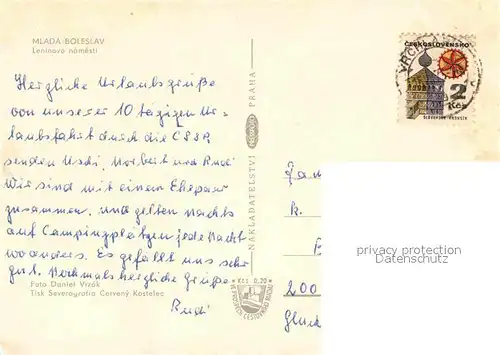 MLADÁ BOLESLAV
Leninovo náměstí
Herzliche Urlaubsgrüße
von unserer 10 tägigen Ur-
laubsfahrt durch die ČSSR,
senden Uschi, Norbert und Rudi
Wir sind mit einem Ehepaar
zusammen, und zelten nachts
auf Campingplätzen jede Nacht
woanders. Es gefällt uns sehr
gut. Nochmals herzliche Grüße
Rudi
Foto Daniel Vrzák
Tisk Severografia Červený Kostelec
NAKLADATELSTVÍ
PRAHA
Kčs 0,20
VE PROSPĚCH CESTOVNÍHO RUCHU
ČESKOSLOVENSKO
2
Kčs
SLOVENSKO
VRCH
Fam
K.
200
Glück
privacy protection
Datenschutz